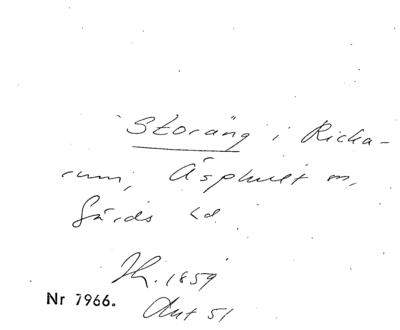 Storäng i Ricka-
rum, Äsphult m,
Gärds hd
Th. 1859
Nr 7966.
Aut 51